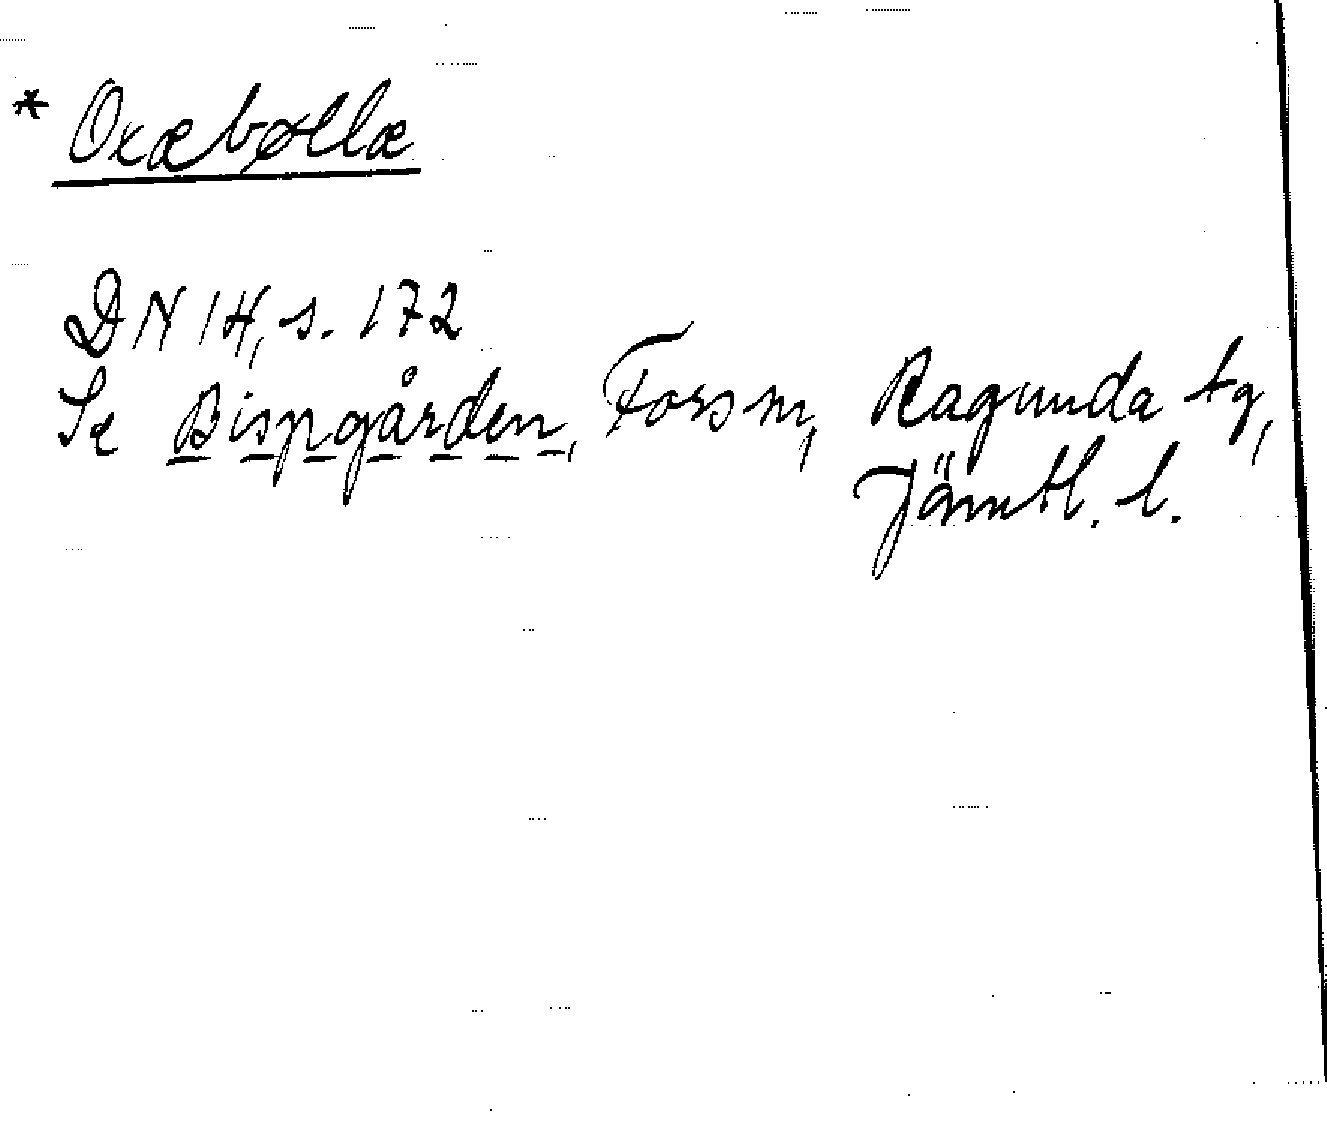 * Oxæbøllæ
DN 14, s. 172
Se Bispgården, Fors sn, Ragunda tg,
Jämtl. l.